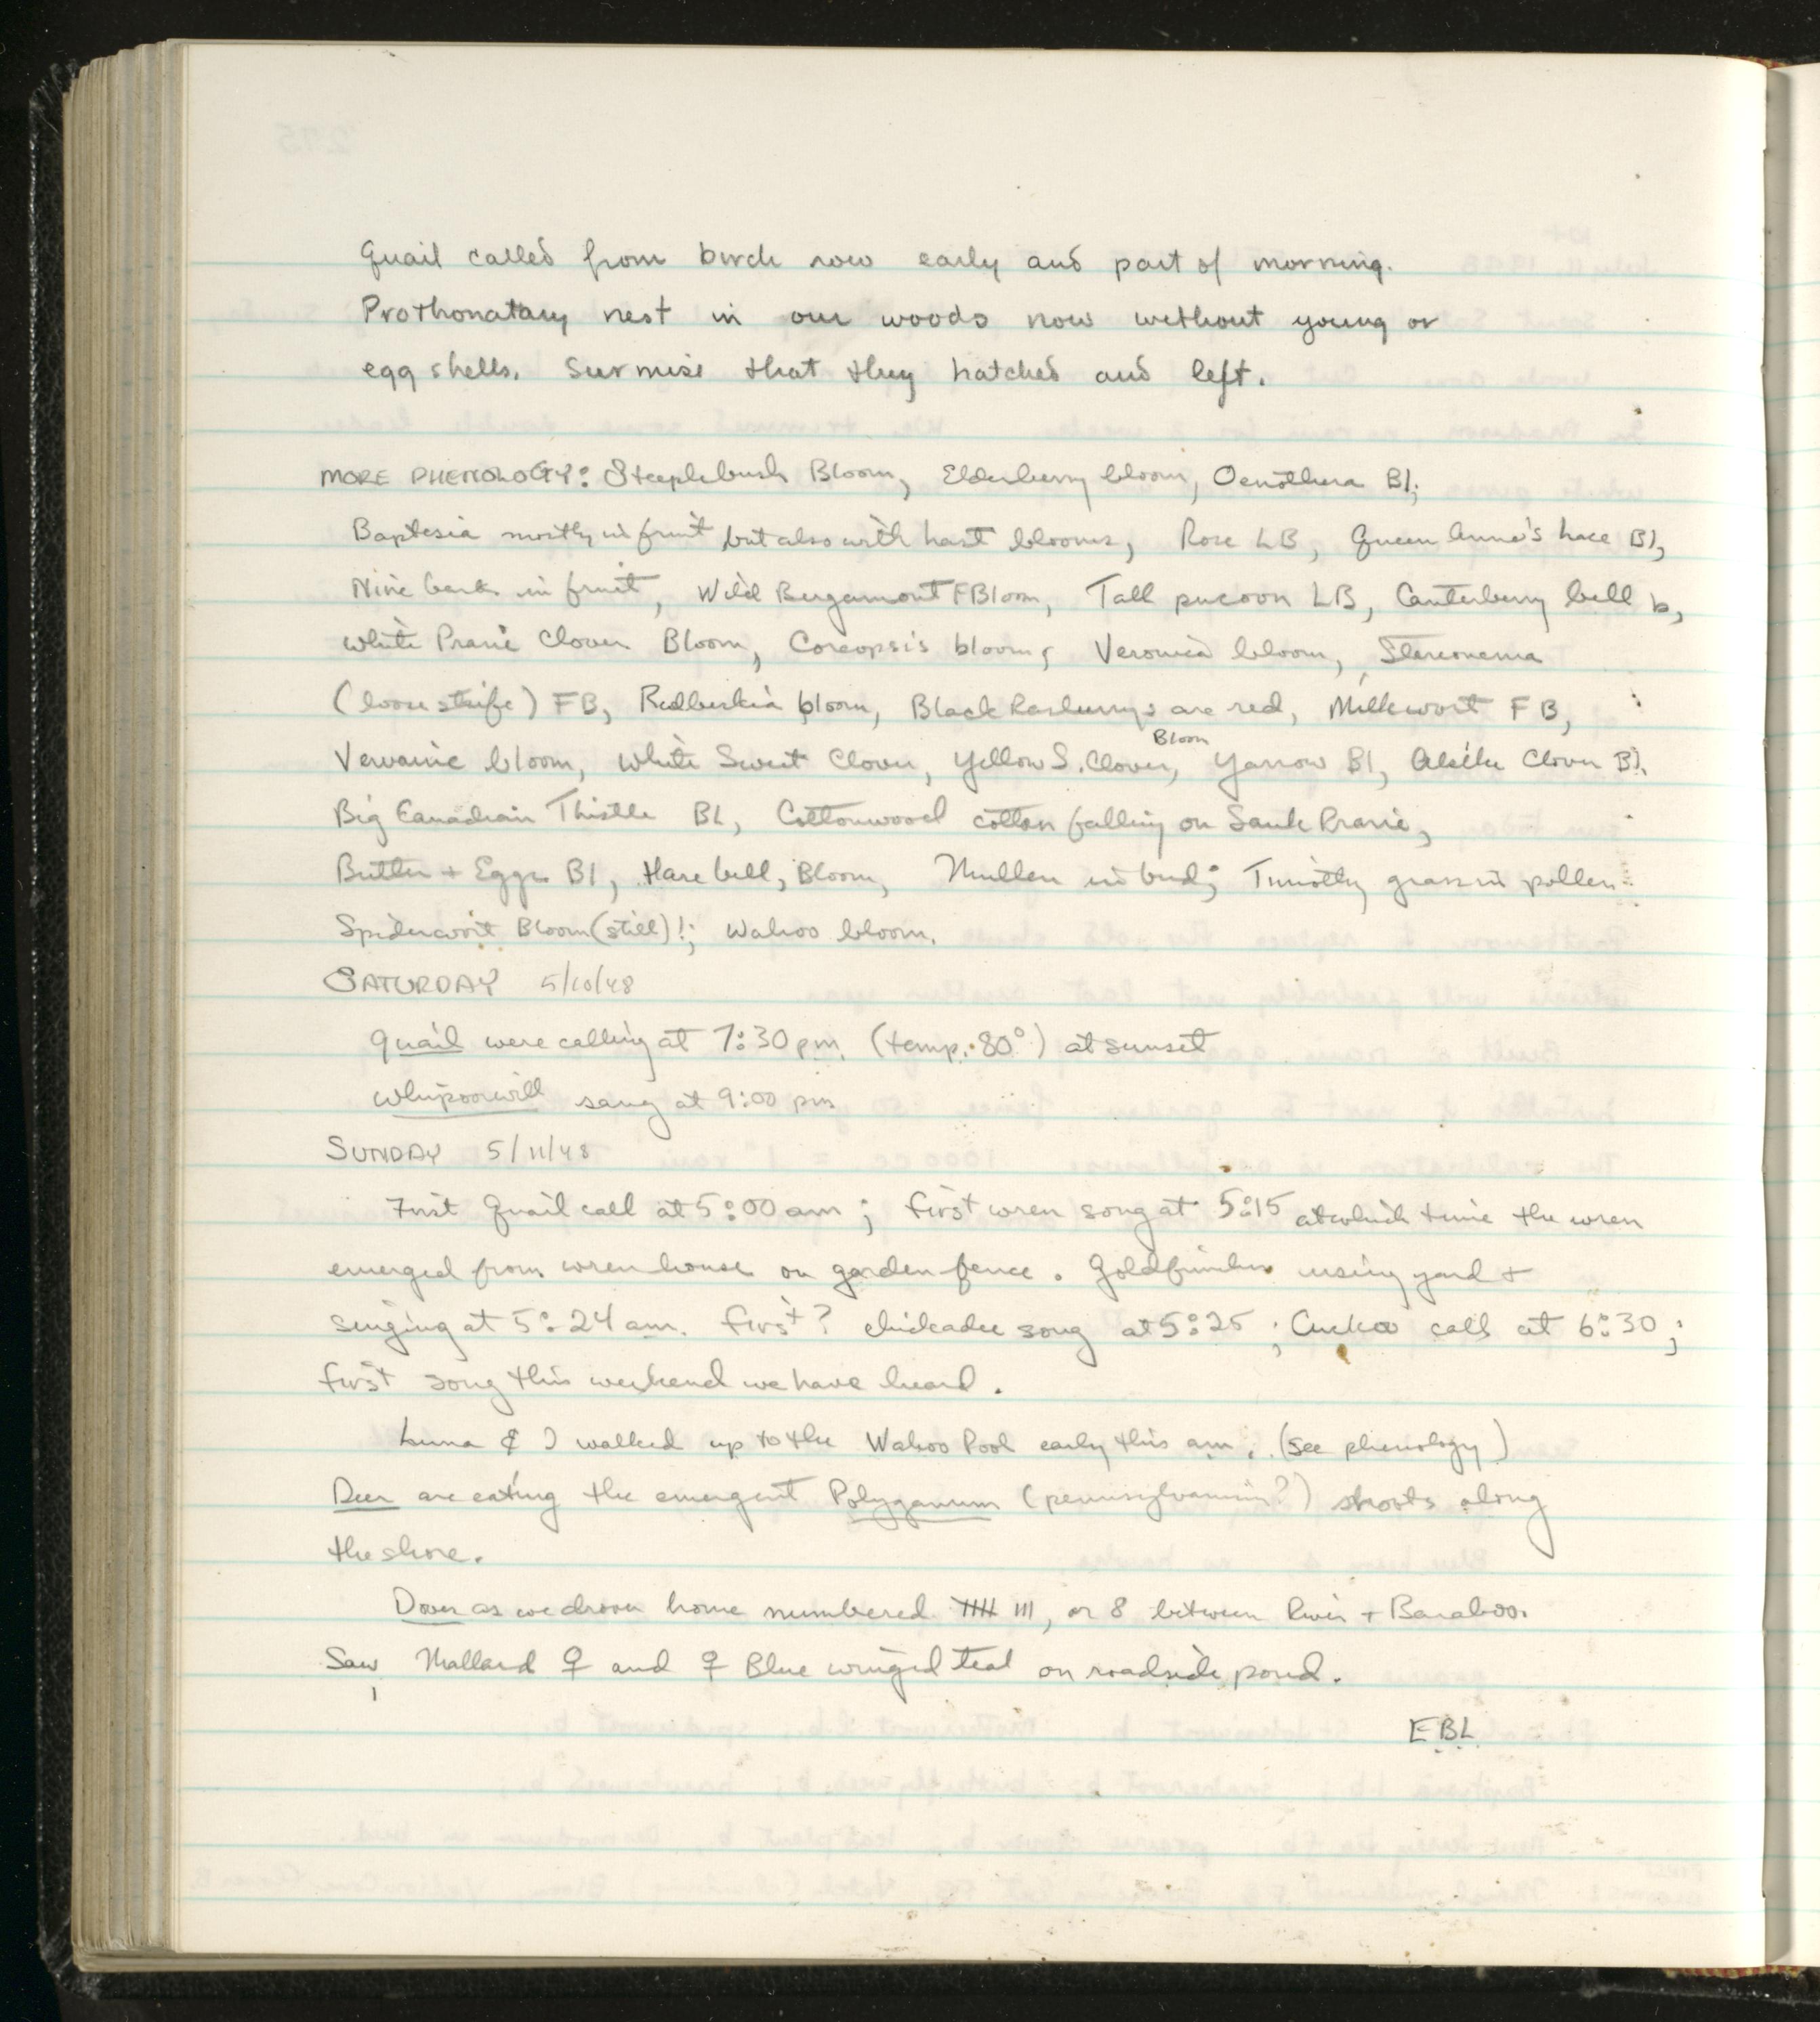 Quail called from birch row early and part of morning.
Prothonatary nest in our woods now without young or
egg shells. Surmise that they hatched and left.
MORE PHENOLOGY: Steeplebush Bloom, Elderberry bloom, Oenothera Bl;
Baptesia mostly in fruit but also with last blooms, Rose LB, Queen Anne's lace Bl,
Nine bark in fruit, Wild Bergamont F Bloom, Tall pucoon LB, Canterberry bell b,
White Prarie Clover Bloom, Coreopsis bloom, Veronica bloom, Steironema
(loose strife) FB, Rudbeckia bloom, Black Rasberrys are red, Milkwort FB,
Bloom
Vervaine bloom, White Sweet Clover, Yellow S. Clover, Yarrow Bl, Alsike Clover Bl.
Big Canadian Thistle BL, Cottonwood cotton falling on Sauk Prarie,
Butter + Eggs Bl, Hare bell, Bloom, Mullen in bud; Timothy grass in pollen
Spiderwort Bloom (still)!; Wahoo bloom.
SATURDAY 5/10/48
Quail were calling at 7:30 pm. (temp. 80°) at sunset
Whipoorwill sang at 9:00 pm
SUNDAY 5/11/48
First Quail call at 5:00 am; first wren song at 5:15 at which time the wren
emerged from wren house on garden fence. Goldfinches using yard +
singing at 5:24 am. first? chickadee song at 5:25; Cuckoo call at 6:30;
first song this weekend we have heard.
Luna & I walked up to the Wahoo Pool early this am. (see phenology)
Deer are eating the emergent Polyganum (pennsylvanium?) shoots along
the shore.
Doves as we drove home numbered 𝍸 III, or 8 between River + Baraboo.
Saw, Mallard ♀ and ♀ Blue winged teal on roadside pond.
EBL